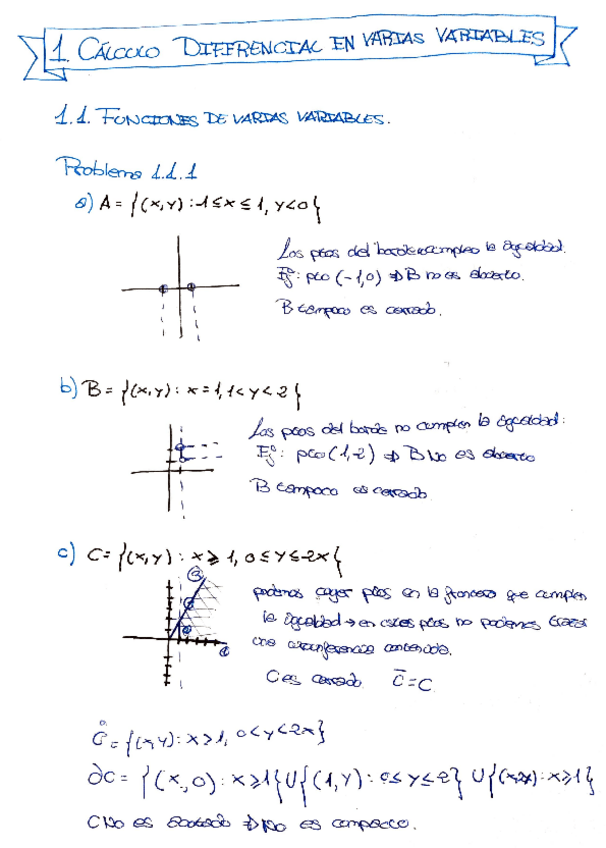 1. CÁLCULO DIFERENCIAL EN VARIAS VARIABLES
1.1. FUNCIONES DE VARIAS VARIABLES.
Problema 1.1.1
a) A = {(x,y) : -1 ≤ x ≤ 1, y<0}
Los ptos del borde la igualdad.
Ej: pto (-1,0) ⇒ B no es abierto.
B tampoco es cerrado.
b) B = {(x,y) : x = 1, 1 < y < 2}
Los ptos del borde no cumplen la igualdad:
Ej: pto (1,2) ⇒ B No es abierto
B tampoco es cerrado
c) C = {(x,y) : x ≥ 1, 0 ≤ y ≤ 2x}
podemos coger ptos en la frontera que cumplen
la igualdad → en estos ptos no podemos trazar
una circunferencia contenida.
C es cerrado C̄ = C
C̊ = {(x,y) : x > 1, 0 < y < 2x}
∂C = {(x,0) : x ≥ 1} U {(1,y) : 0 ≤ y ≤ 2} U {(x,2x) : x ≥ 1}
C No es acotado ⇒ No es compacto.